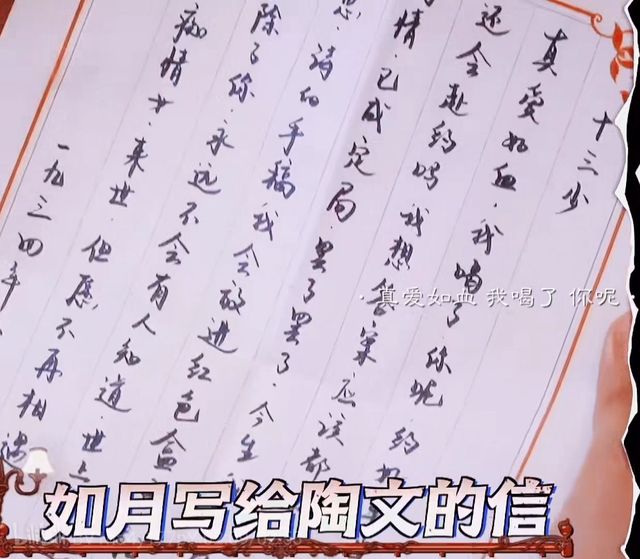 十三少
真愛如血.我喝了.你呢.约
还会赴约吗.我想答案.应该都
情.已成定局.罢了罢了.今生
思.诗的手稿.我会放进红色盒
除了你.永远不会有人知道.世上
痴情女.来世.但愿不再相遇
一九三四年
·真爱如血 我喝了 你呢
如月写给陶文的信